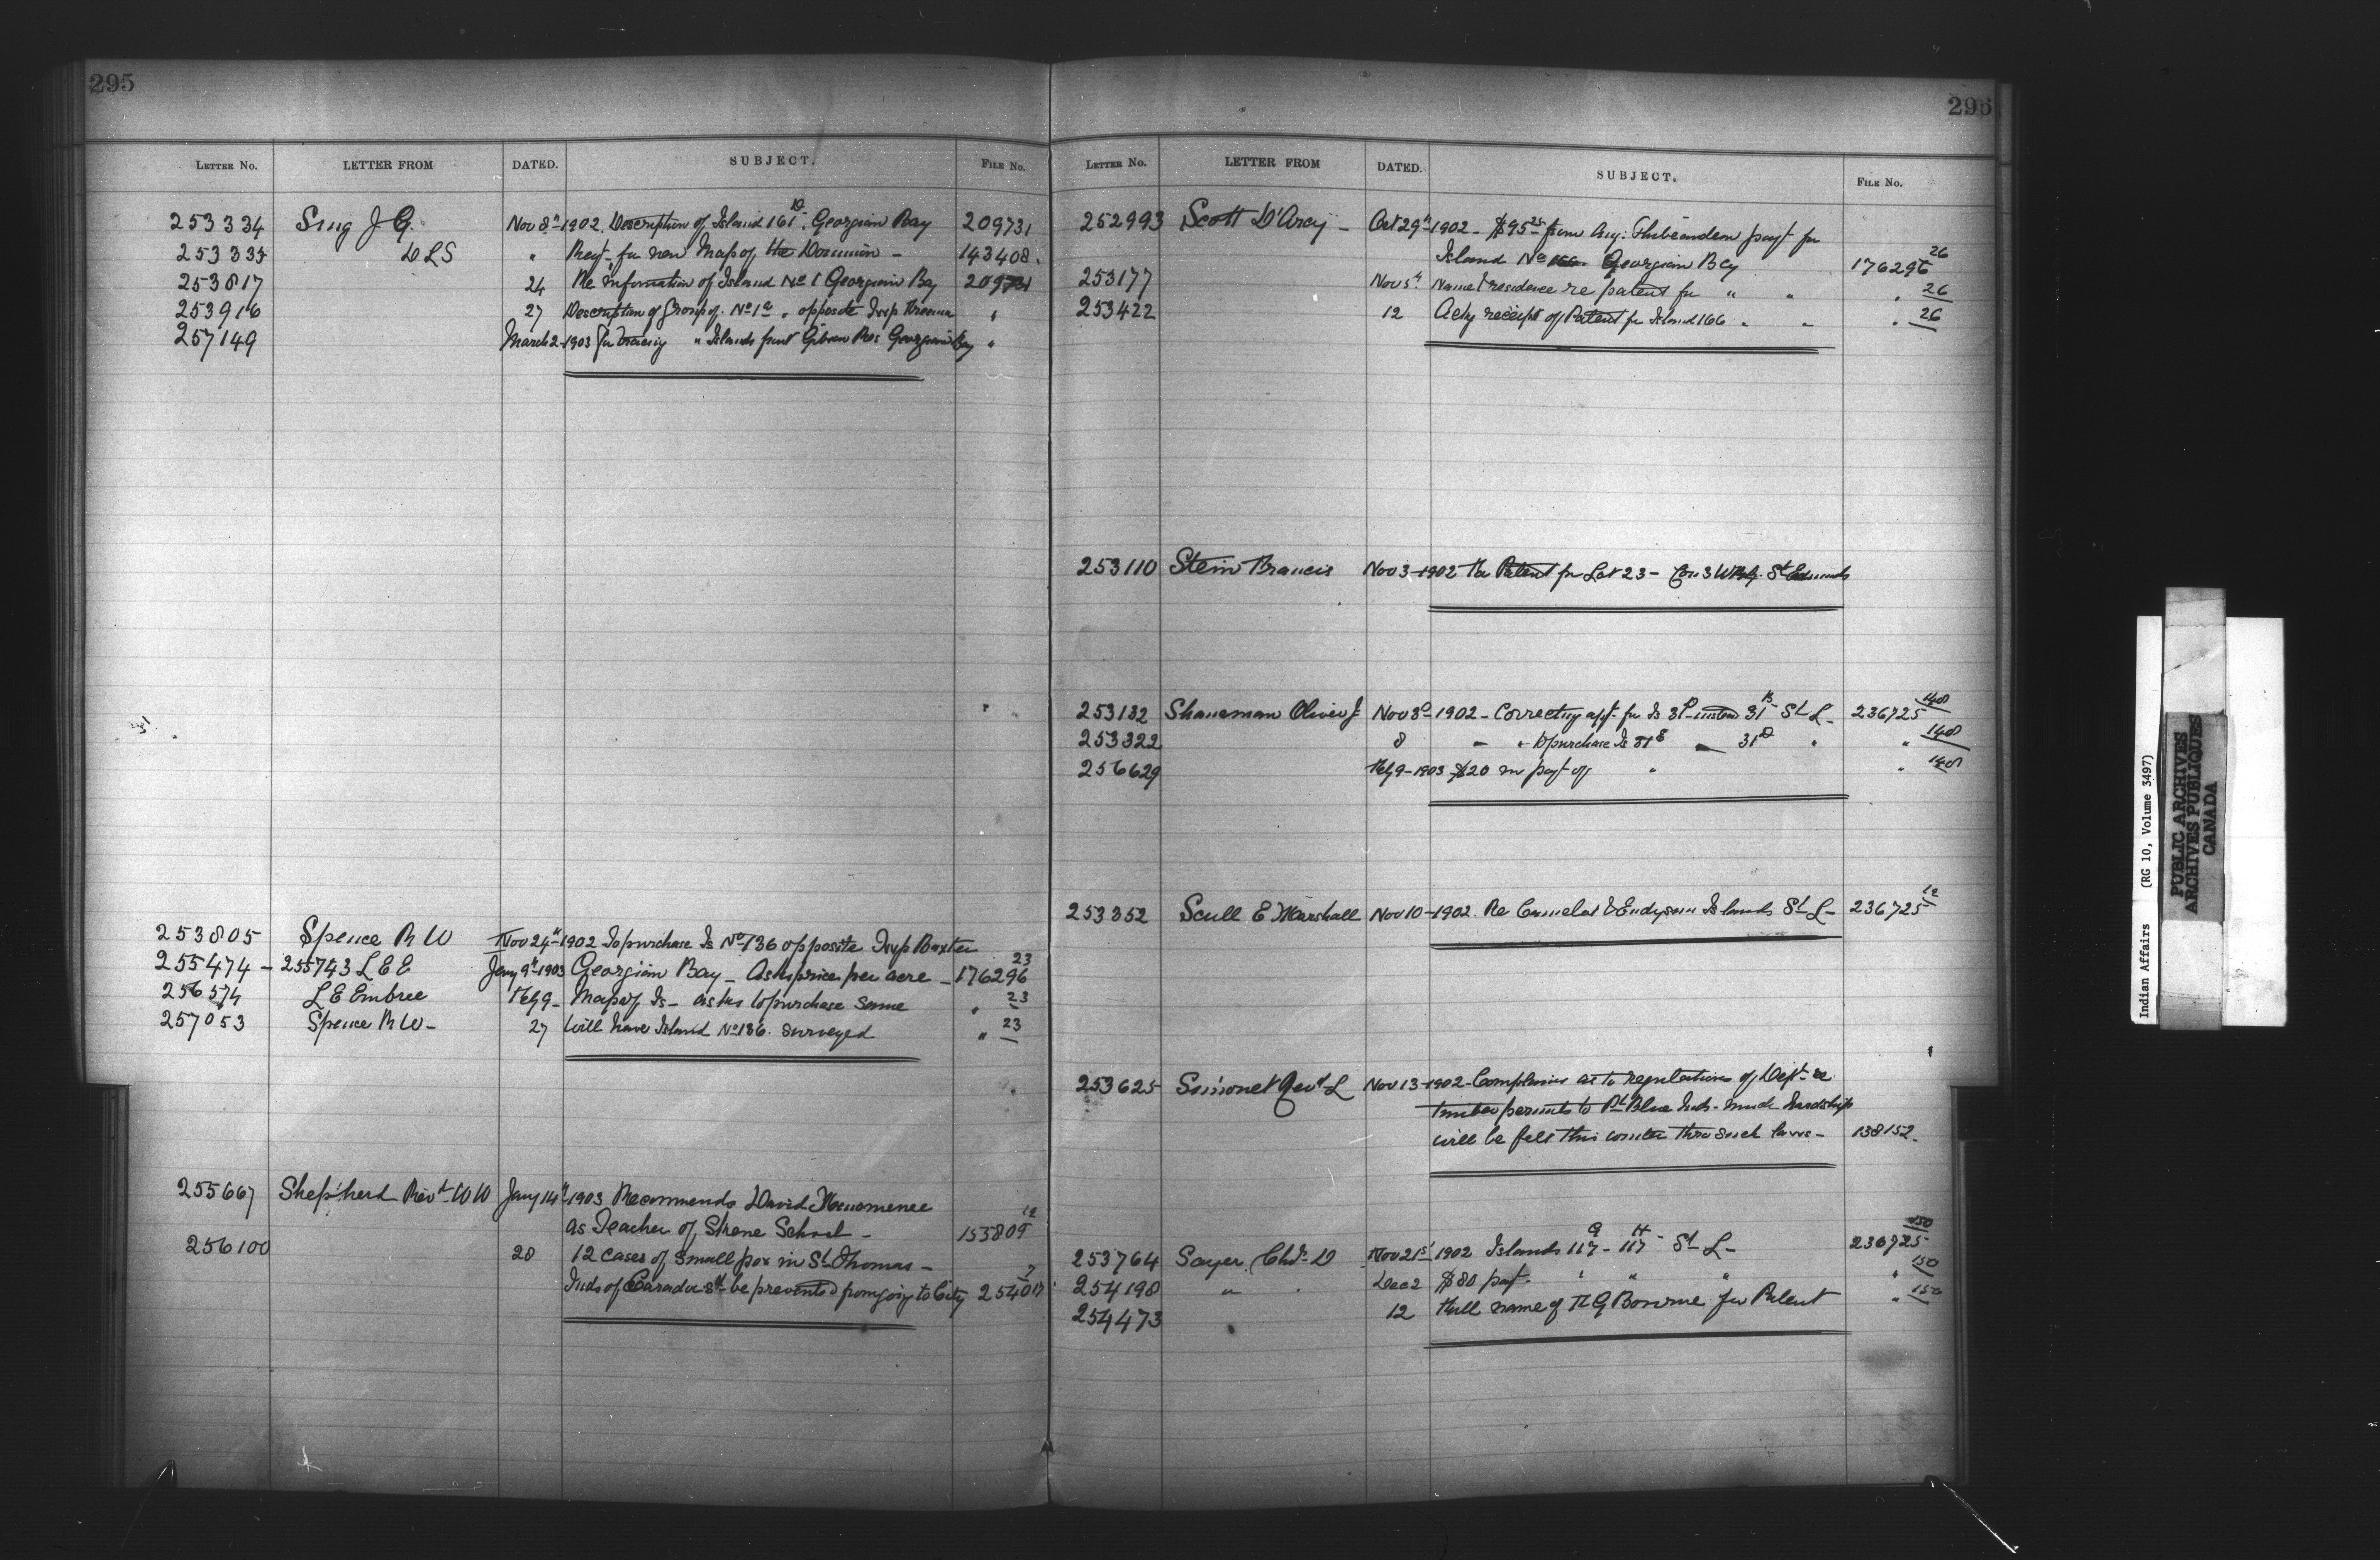 295
LETTER No. LETTER FROM DATED. SUBJECT. FILE No.
253334 Sing J G. Nov 8th 1902. Description of Island 161D. Georgian Bay 209731
253333 DLS " Reqt. for new Map of the Dominion - 143408.
253817 24 Re Information of Island No 1 Georgian Bay 209731
253916 27 Description of Group of No 1a " opposite Twp "
257149 March 2-1903 For tracing " Islands Gibson Res Georgian Bay "
253805 Spence R W Nov 24th 1902 To purchase Is No 136 opposite Twp Baxter
255474 - 255743 L E E Jany 9th 1903 Georgian Bay - As to price per acre - 176296 23
256574 L E Embree Feby 9 - Map of Is - as to purchase same " 23
257053 Spence R W - 27 Will have Island No 136. surveyed " 23
255667 Shepherd Revd W W Jany 14th 1903 Recommends David
as Teacher of School - 155809 12
256100 28 12 cases of small pox in St Thomas -
Inds of Caradoc shd be prevented from going to City 254017
296
LETTER No. LETTER FROM DATED. SUBJECT. FILE No.
252993 Scott D'Arcy - Oct 29th 1902 - $95 25 from Aug: Thibeaudeau payt for
Island No 166. Georgian Bay 176296 26
253177 Nov 5th Name & residence re patent for " " " 26
253422 12 Ackg receipt of Patent for Island 166 " " " 26
253110 Stein Francis Nov 3-1902 For Patent for Lot 23 - Con 3 St Edmunds
253132 Shaneman Oliver J Nov 3d 1902 - Correcting appn. for Is 31D instead 31B St L - 236725 148
253322 8 - " to purchase Is 31B - 31D " " 148
256629 Feby 9-1903 $20 in payt of " " 148
253352 Scull E Marshall Nov 10-1902. Re Camelot & Endymion Islands St L - 236725 12
253625 Simonet Revd L Nov 13-1902 - Complains as to regulations of Dept re
timber permits to Pt Blue Inds - much hardship
will be felt this winter thro such laws - 138152.
253764 Sayer Chs D Nov 21st 1902 Islands 117G - 117H St L - 236725 150
254198 " " Dec 2 $80 payt. " " " " 150
254473 12 Full name of F G Bourne for Patent " 150
Indian Affairs (RG 10, Volume 3497)
PUBLIC ARCHIVES
ARCHIVES PUBLIQUES
CANADA